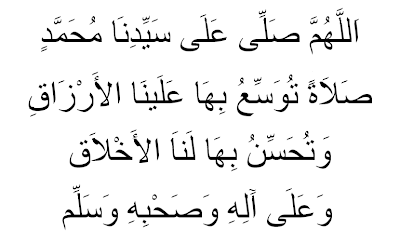 اَللَّهُمَّ صَلِّى عَلَى سَيِّدِنَا مُحَمَّدٍ
صَلاَةً تُوَسِّعُ بِهَا عَلَينَا الأَرْزَاقِ
وَتُحَسِّنُ بِهَا لَنَا الأَخْلاَق
وَعَلَى آلِهِ وَصَحْبِهِ وَسَلِّم